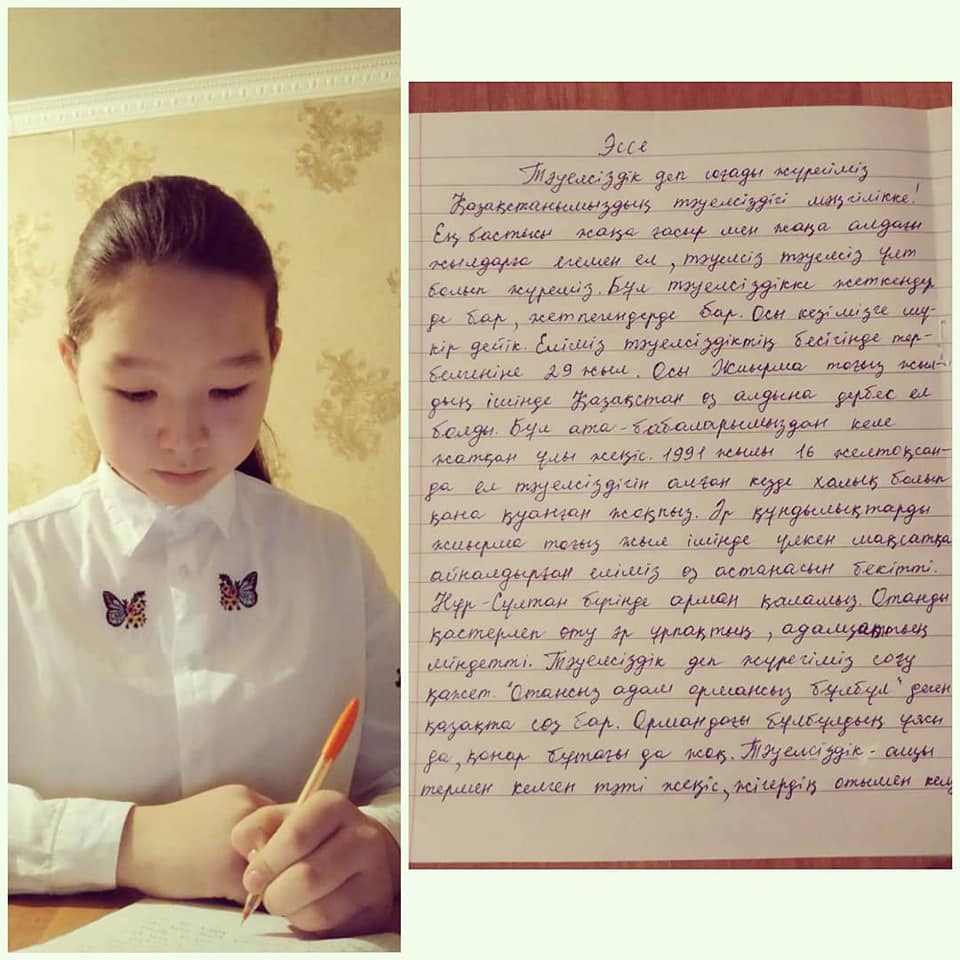 Эссе
Тәуелсіздік деп соғады жүрегіміз
Қазақстанымыздың тәуелсіздігі мәңгілікке!
Ең бастысы жаңа ғасыр мен жаңа алдағы
жылдарға егемен ел, тәуелсіз тәуелсіз ұлт
болып жүреміз. Бұл тәуелсіздікке жеткендер
де бар, жетпегендерде бар. Осы кезімізге шү-
кір дейік. Еліміз тәуелсіздіктің бесігінде тер-
белгеніне 29 жыл. Осы Жиырма тоғыз жыл-
дың ішінде Қазақстан өз алдына дербес ел
болды. Бұл ата-бабаларымыздан келе
жатқан ұлы жеңіс. 1991 жылы 16 желтоқсан-
да ел тәуелсіздігін алған кезде халық болып
қана қуанған жоқпыз. Әр құндылықтарды
жиырма тоғыз жыл ішінде үлкен мақсатқа
айналдырған еліміз өз астанасын бекітті.
Нұр-Сұлтан бірінде арман қаламыз. Отанды
қастерлеп өту әр ұрпақтың, адамзаттың
міндетті. Тәуелсіздік деп жүрегіміз соғу
қажет. "Отансыз адам ормансыз бұлбұл" деген
қазақта сөз бар. Ормандағы бұлбұлдың ұясы
да, қонар бұтағы да жоқ. Тәуелсіздік - ащы
термен келген тәтті жеңіс, жігердің отымен